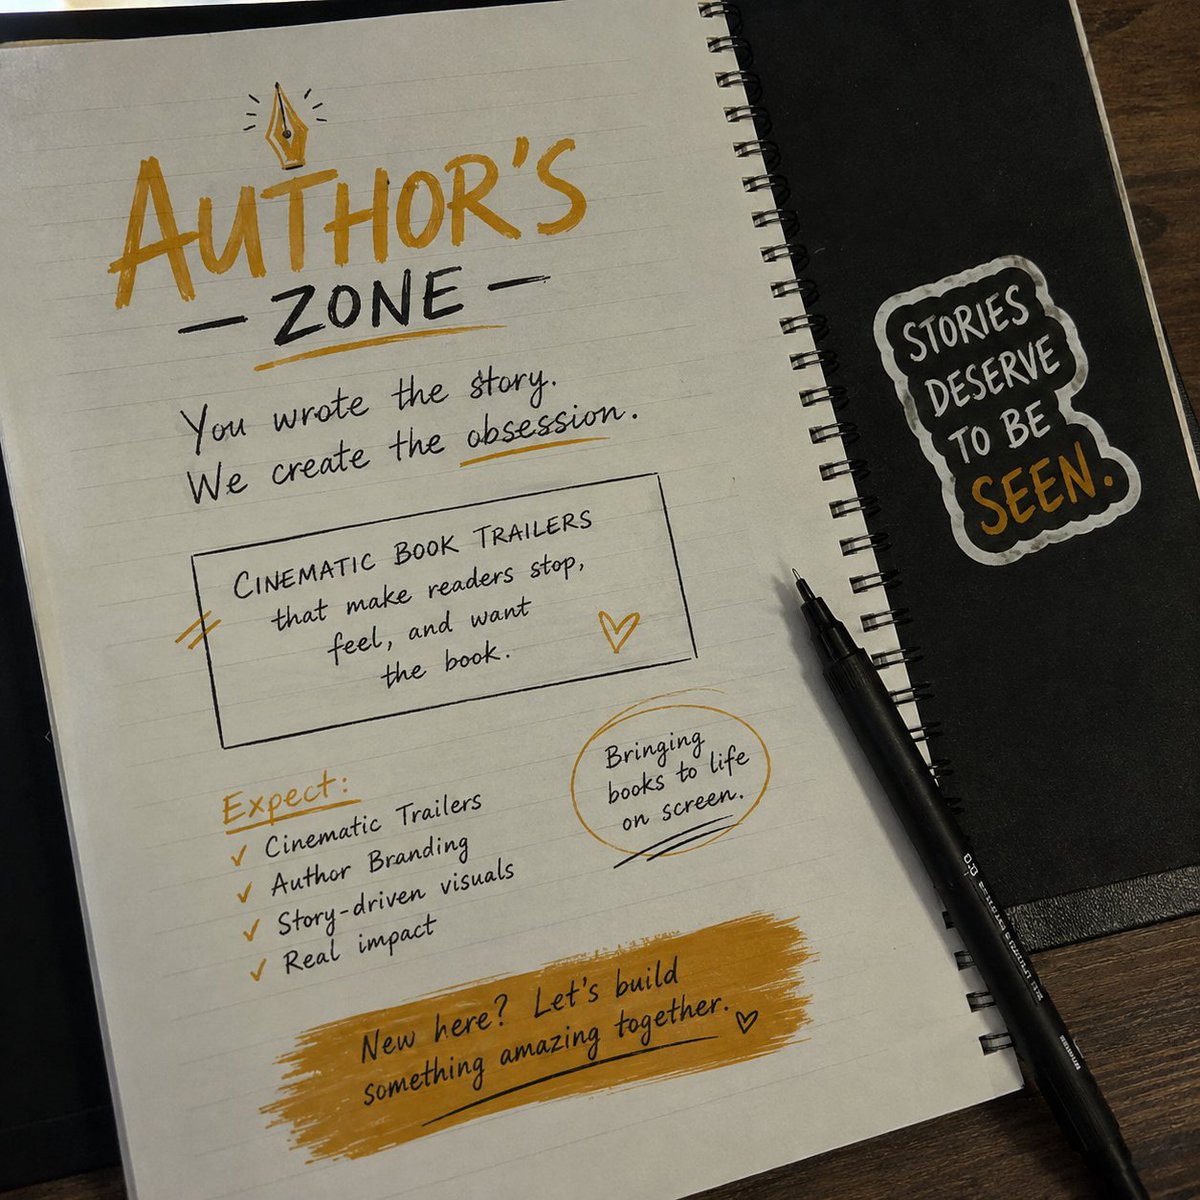 AUTHOR'S
— ZONE —
You wrote the story.
We create the obsession.
CINEMATIC BOOK TRAILERS
that make readers stop,
feel, and want
the book.
Bringing
books to life
on screen.
Expect:
✓ Cinematic Trailers
✓ Author Branding
✓ Story-driven visuals
✓ Real impact
New here? Let's build
something amazing together.
STORIES
DESERVE
TO BE
SEEN.